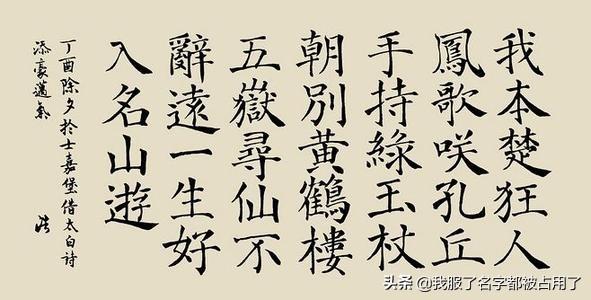 我本楚狂人
鳳歌咲孔丘
手持綠玉杖
朝別黃鶴樓
五嶽尋仙不
辭遠一生好
入名山遊
丁酉除夕於士嘉堡借太白詩
添豪邁氣
浩
头条 @我服了名字都被占用了